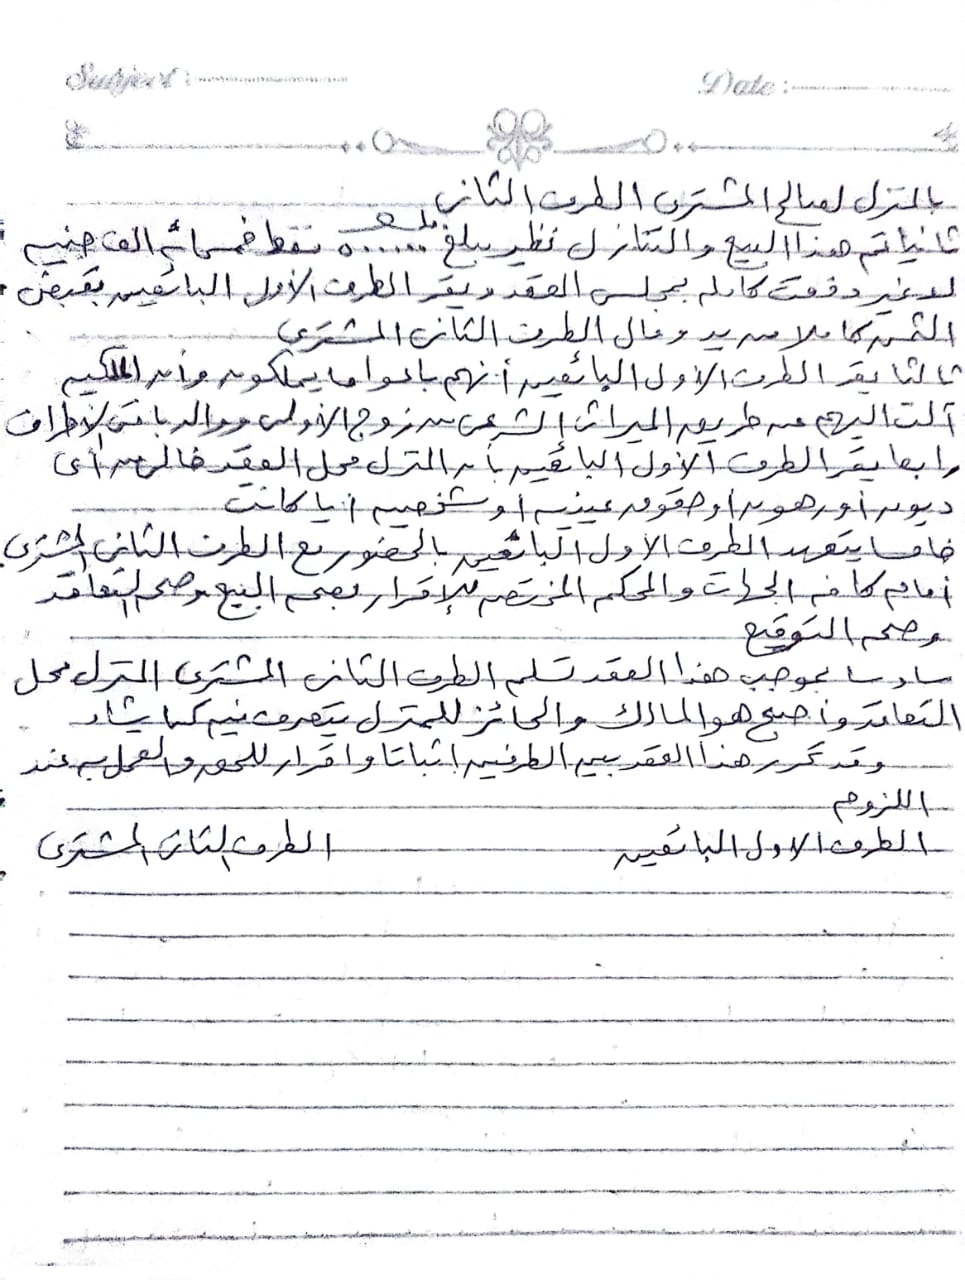 Subject :
Date :
بالمنزل لصالح المشترى الطرف الثانى
ثانيا تم هذا البيع والتنازل نظير مبلغ ٥٠٠٠٠٠ فقط خمسمائة الف جنيه
لا غير دفعت كاملة بمجلس العقد ويقر الطرف الأول البائعين بقبض
الثمن كاملا من يد ومال الطرف الثانى المشترى
ثالثا يقر الطرف الأول البائعين أنهم باعوا ما يملكون وأن الملكيه
آلت اليهم عن طريق الميراث الشرعى من زوج الأولى ووالد باقى الأطراف
رابعا يقر الطرف الأول البائعين بأن المنزل محل العقد خالى من أى
ديون أو رهون او حقوق عينيه او شخصيه أيا كانت
خامسا يتعهد الطرف الاول البائعين بالحضور مع الطرف الثانى المشترى
أمام كافه الجهات والمحكم المختصه للإقرار بصحه البيع وصحه التعاقد
وصحه التوقيع
سادسا بموجب هذا العقد تسلم الطرف الثانى المشترى المنزل محل
التعاقد وأصبح هو المالك والحائز للمنزل يتصرف فيه كما يشاء
وقد تحرر هذا العقد بين الطرفين اثباتا واقرار للحق والعمل به عند
اللزوم
الطرف الاول البائعين
الطرف الثانى المشترى